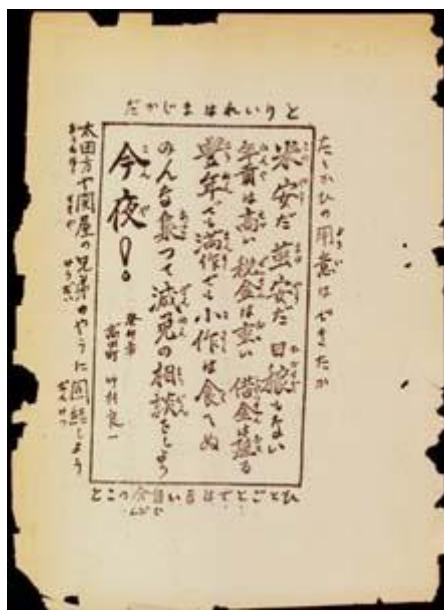 とりいれはまじかだ
たゝかひの用意はできたか
米安だ 繭安だ 日稼もない
年貢は高い 税金は重い 借金は
豊年でも満作でも小作は食へぬ
みんな集つて減免の相談をしよう
今夜!
発行者
高田町 竹村良一
太田方や関屋の兄弟のやうに団結しよう
ひとごとではない のこと